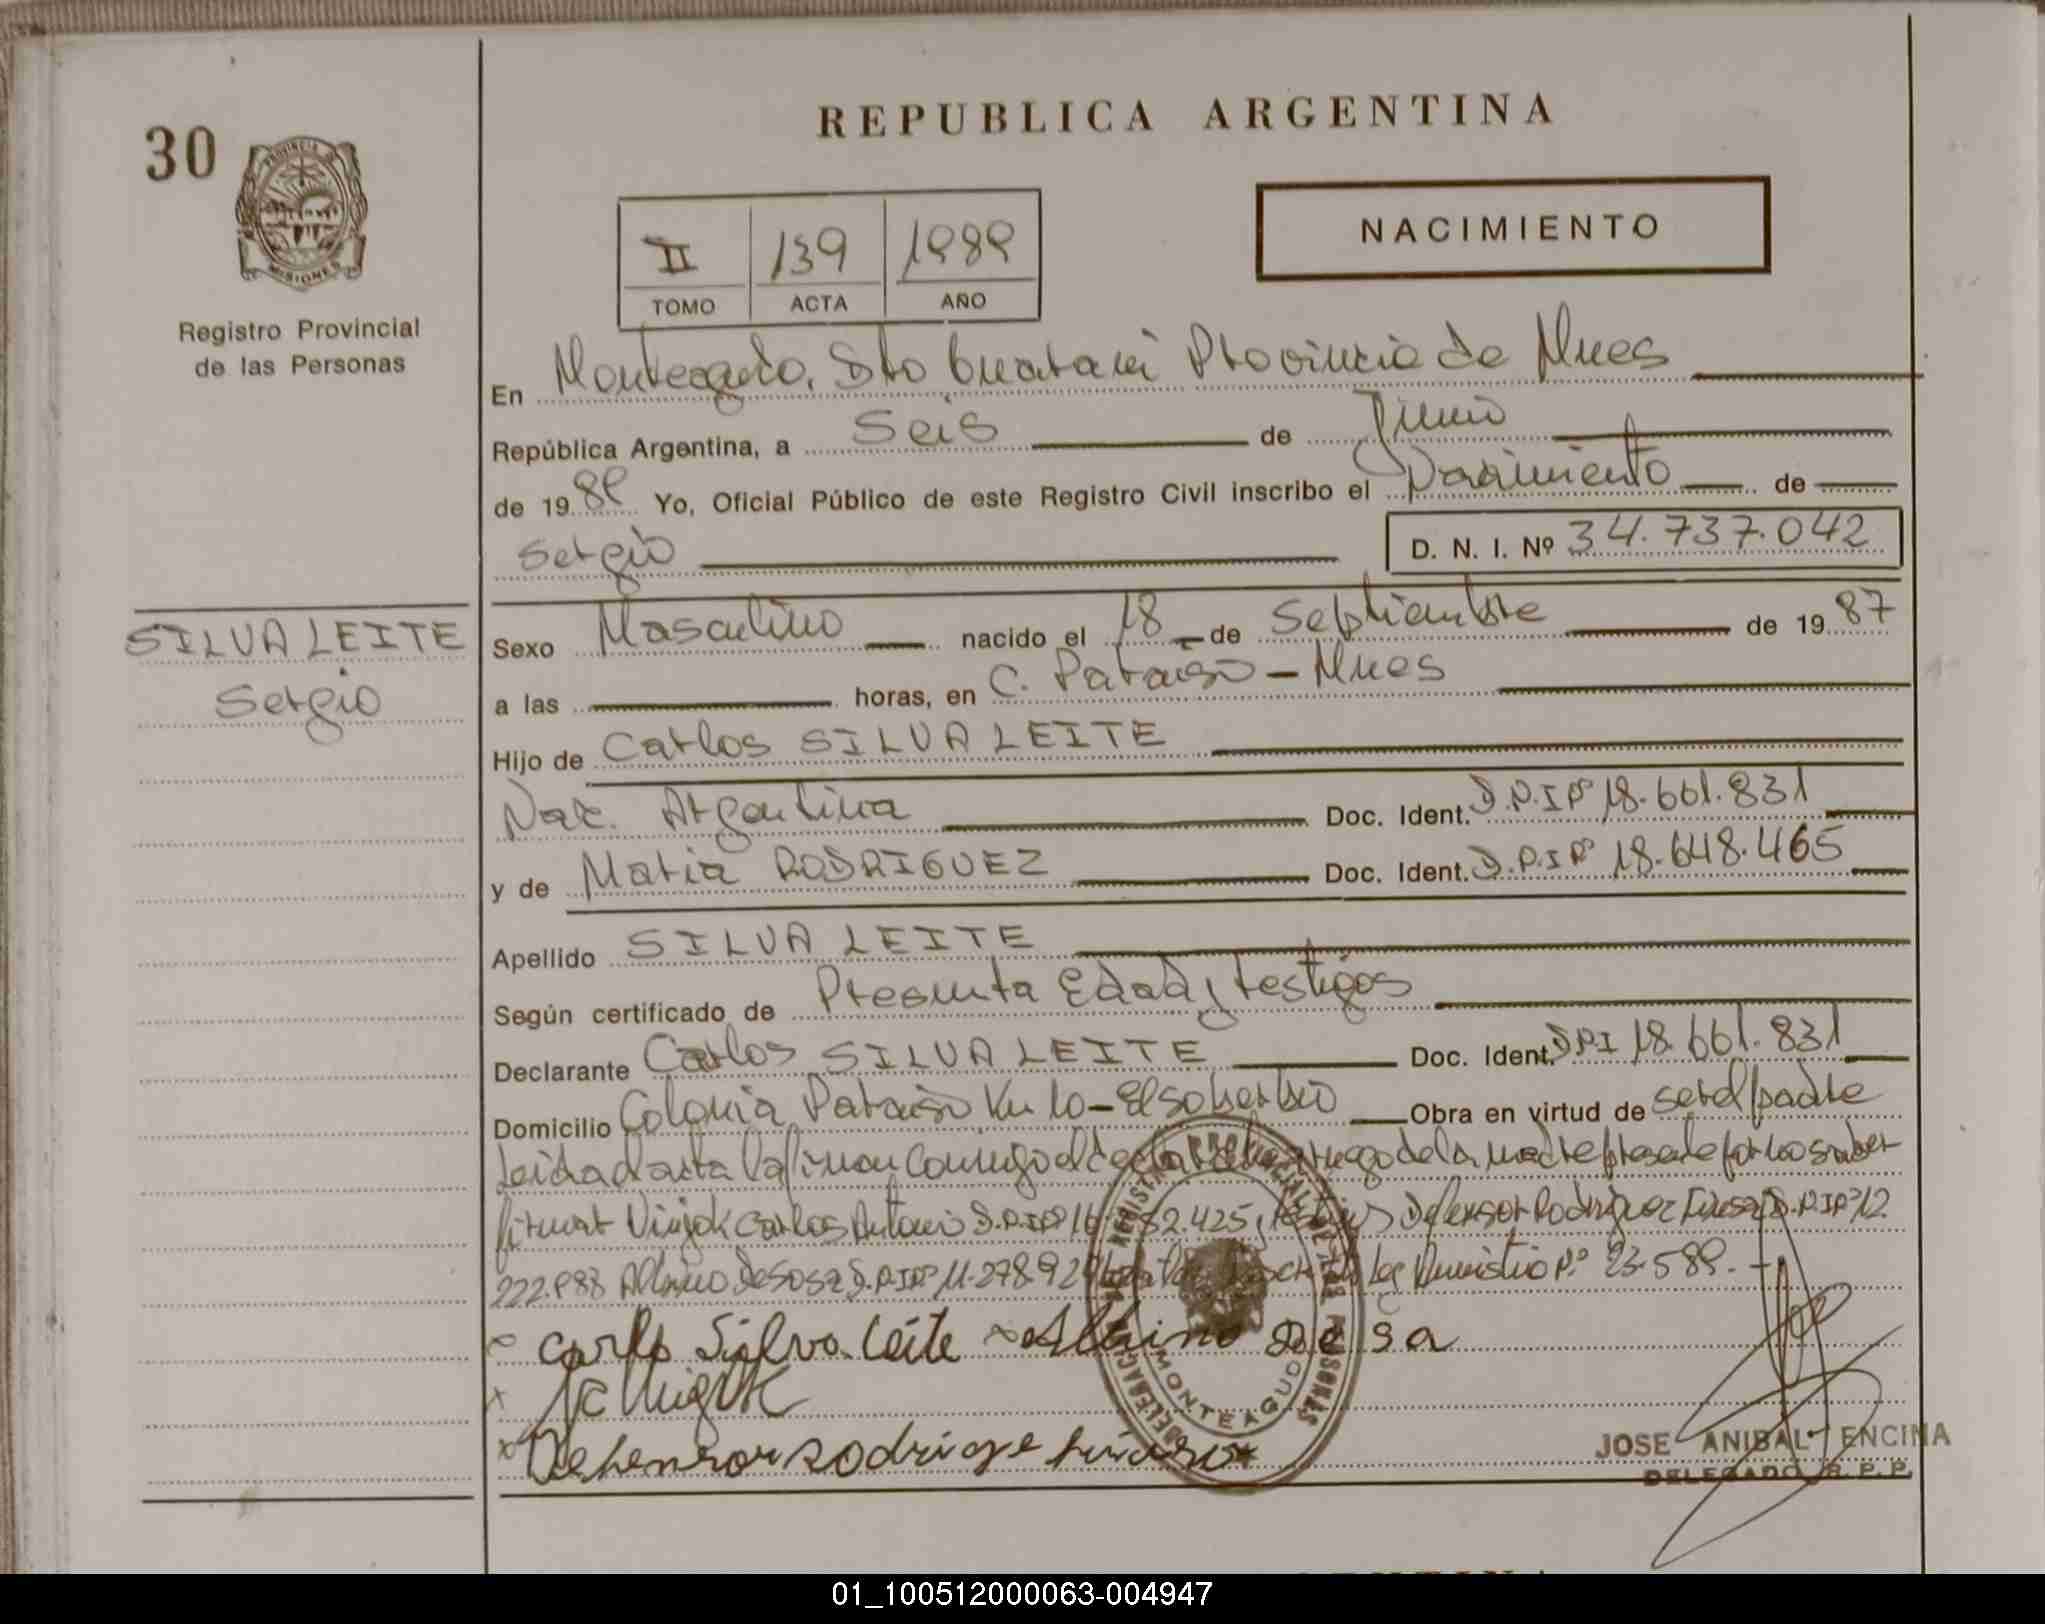 REPUBLICA ARGENTINA
30
PROVINCIA DE
MISIONES
Registro Provincial
de las Personas
NACIMIENTO
II 139 1989
TOMO ACTA AÑO
En Monteagudo, Dto Guarani Provincia de Mnes
República Argentina, a Seis de Junio
de 1989 Yo, Oficial Público de este Registro Civil inscribo el Nacimiento de
Sergio D. N. I. Nº 34.737.042
SILVA LEITE
Sergio
Sexo Masculino nacido el 18 de Septiembre de 1987
a las horas, en C. Paraiso - Mnes
Hijo de Carlos SILVA LEITE
Nac. Argentina Doc. Ident. D.N.I Nº 18.661.831
y de Maria RODRIGUEZ Doc. Ident. D.N.I Nº 18.648.465
Apellido SILVA LEITE
Según certificado de Presunta Edad y testigos
Declarante Carlos SILVA LEITE Doc. Ident. DNI 18.661.831
Domicilio Colonia Paraiso Km 10 - El soberbio Obra en virtud de ser el padre
Leida el acta la firman conmigo el declarante, a ruego de la madre presente por no saber
firmar Carlos Antonio D.N.I Nº testigos Defensor Rodriguez D.N.I Nº 12
222.983 Albino De Sosa D.N.I Nº 11.278.92 Ley Nº 23.589.-
x Carlo Silva Leite x Albino De sa
x
x Defensor Rodrige
DELEGACION REGISTRO PROVINCIAL DE LAS PERSONAS
MONTEAGUDO
JOSE ANIBAL ENCINA
DELEGADO R.P.P.
01_100512000063-004947